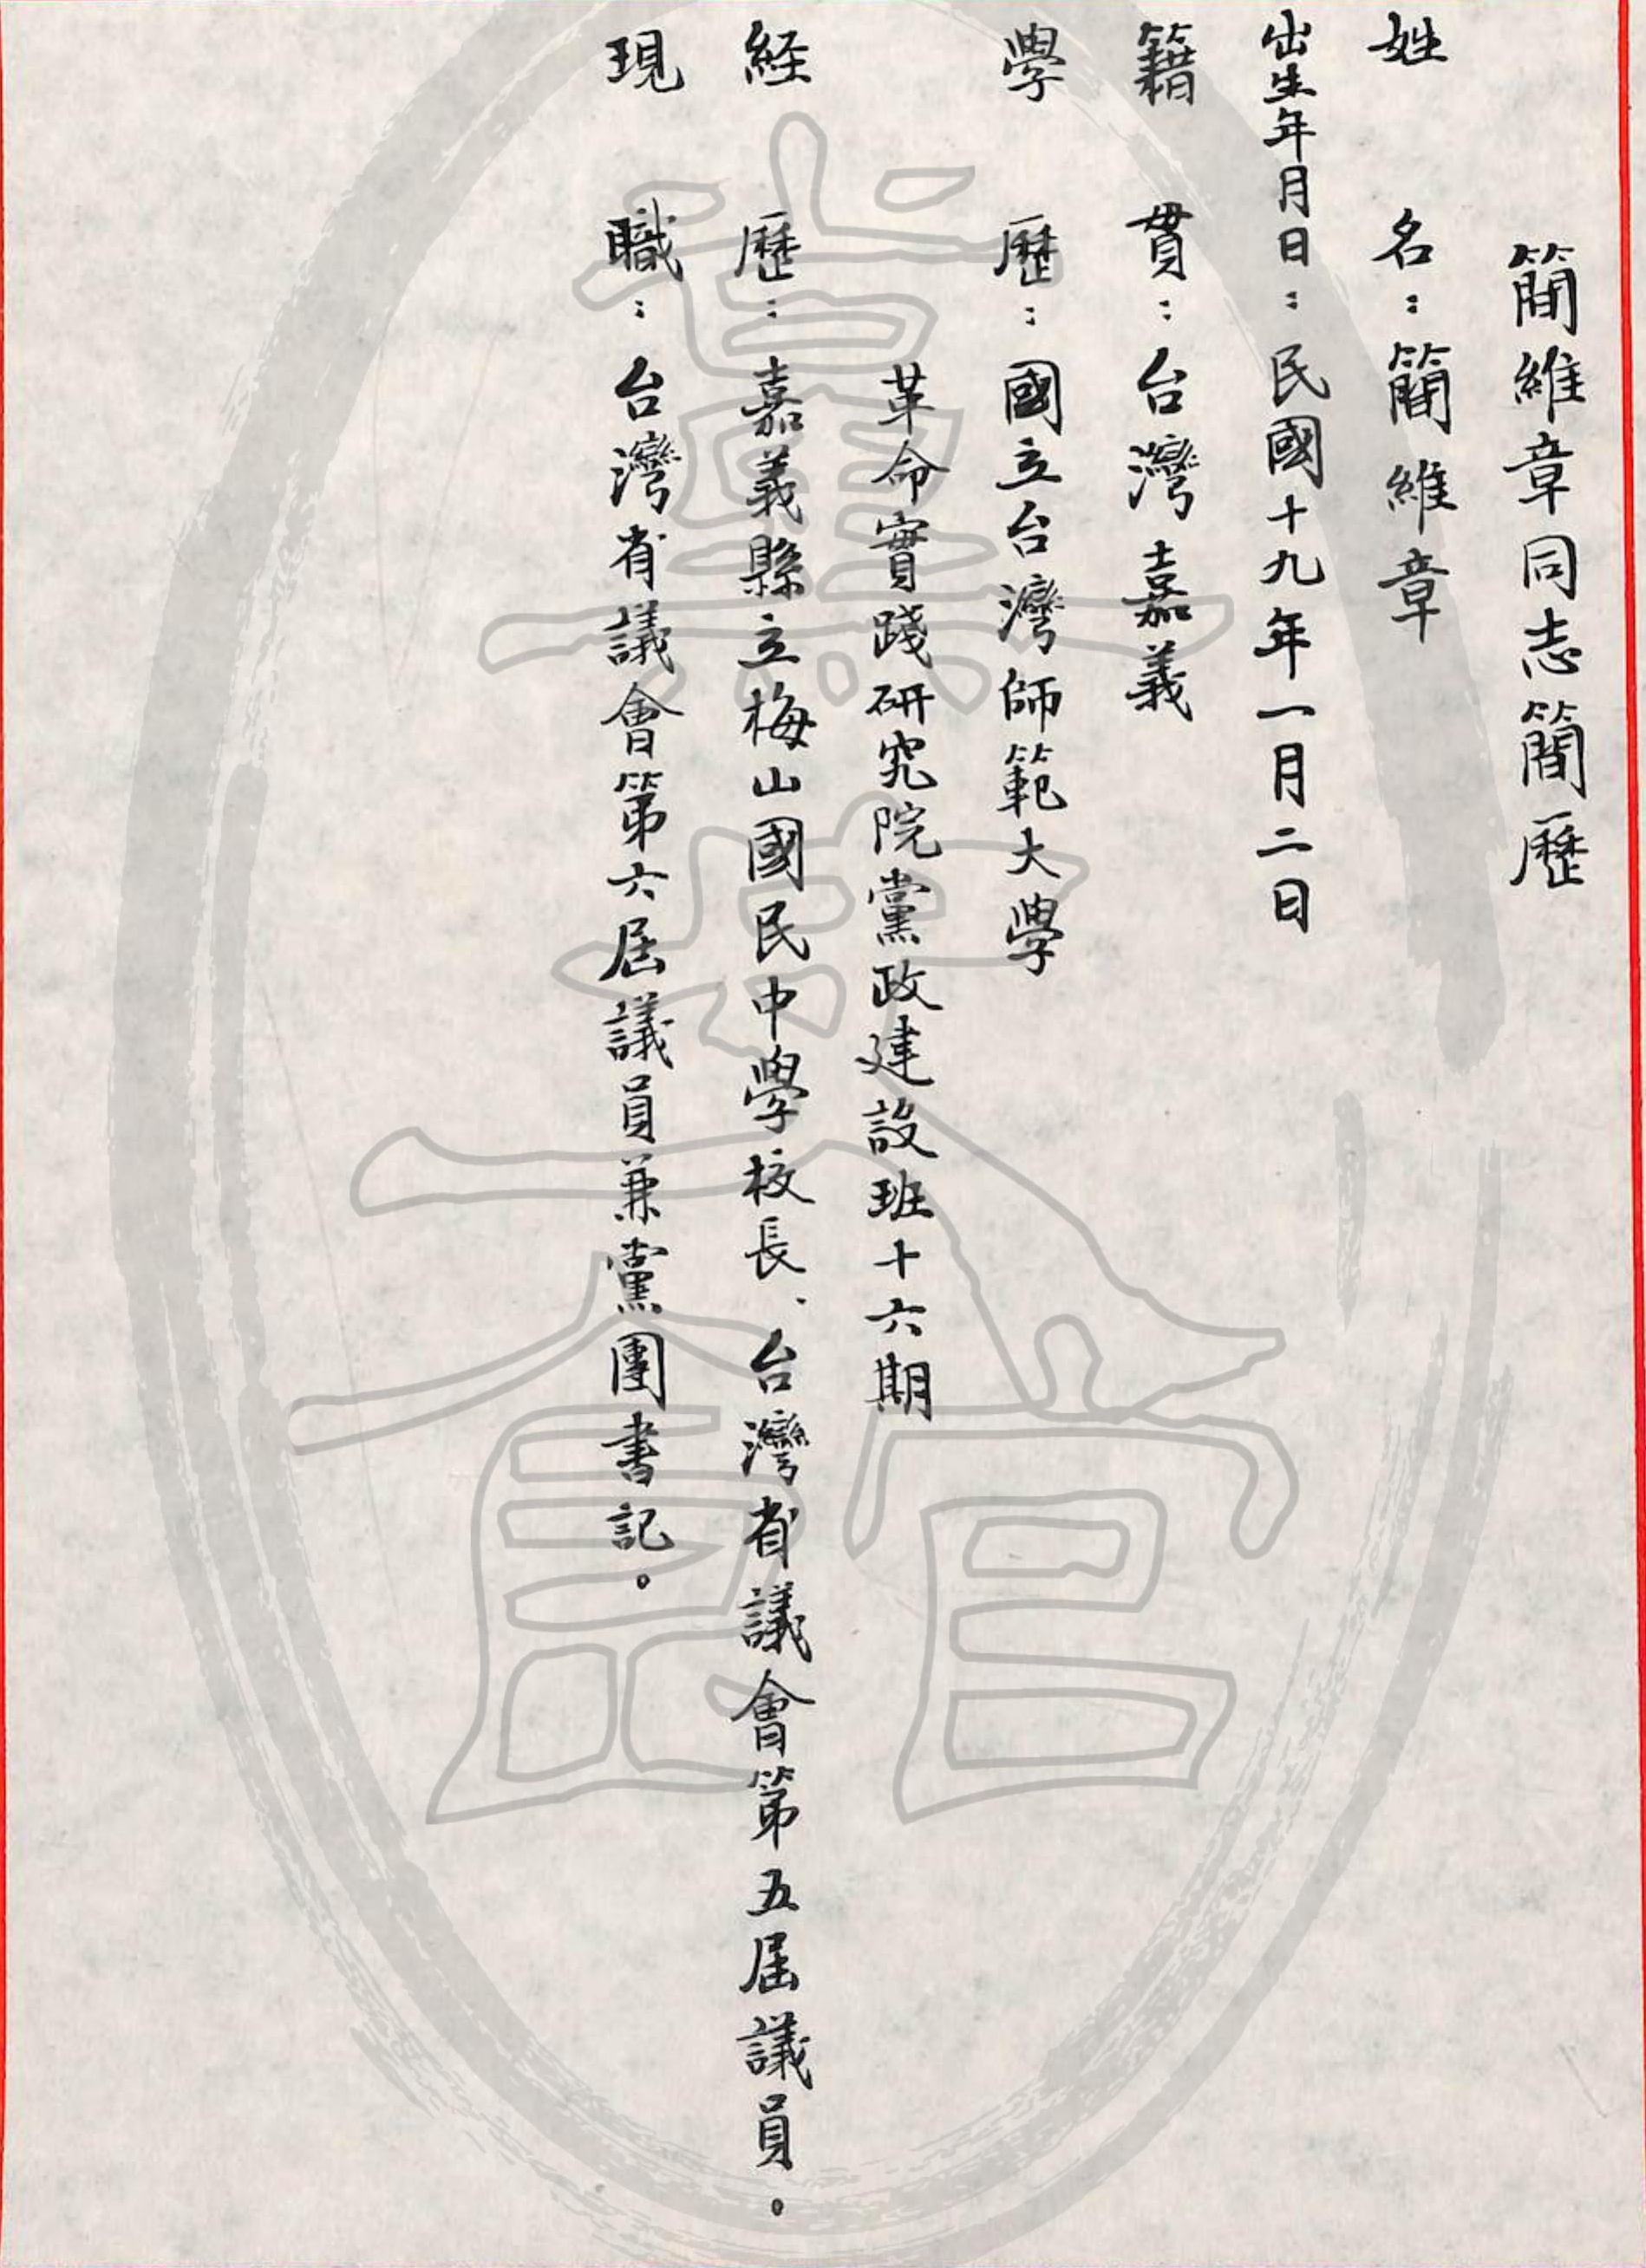 簡維章同志簡歷
姓名：簡維章
出生年月日：民國十九年一月二日
籍貫：台灣嘉義
學歷：國立台灣師範大學
革命實踐研究院黨政建設班十六期
経歷：嘉義縣立梅山國民中學校長、台灣省議會第五屆議員。
現職：台灣省議會第六屆議員兼黨團書記。